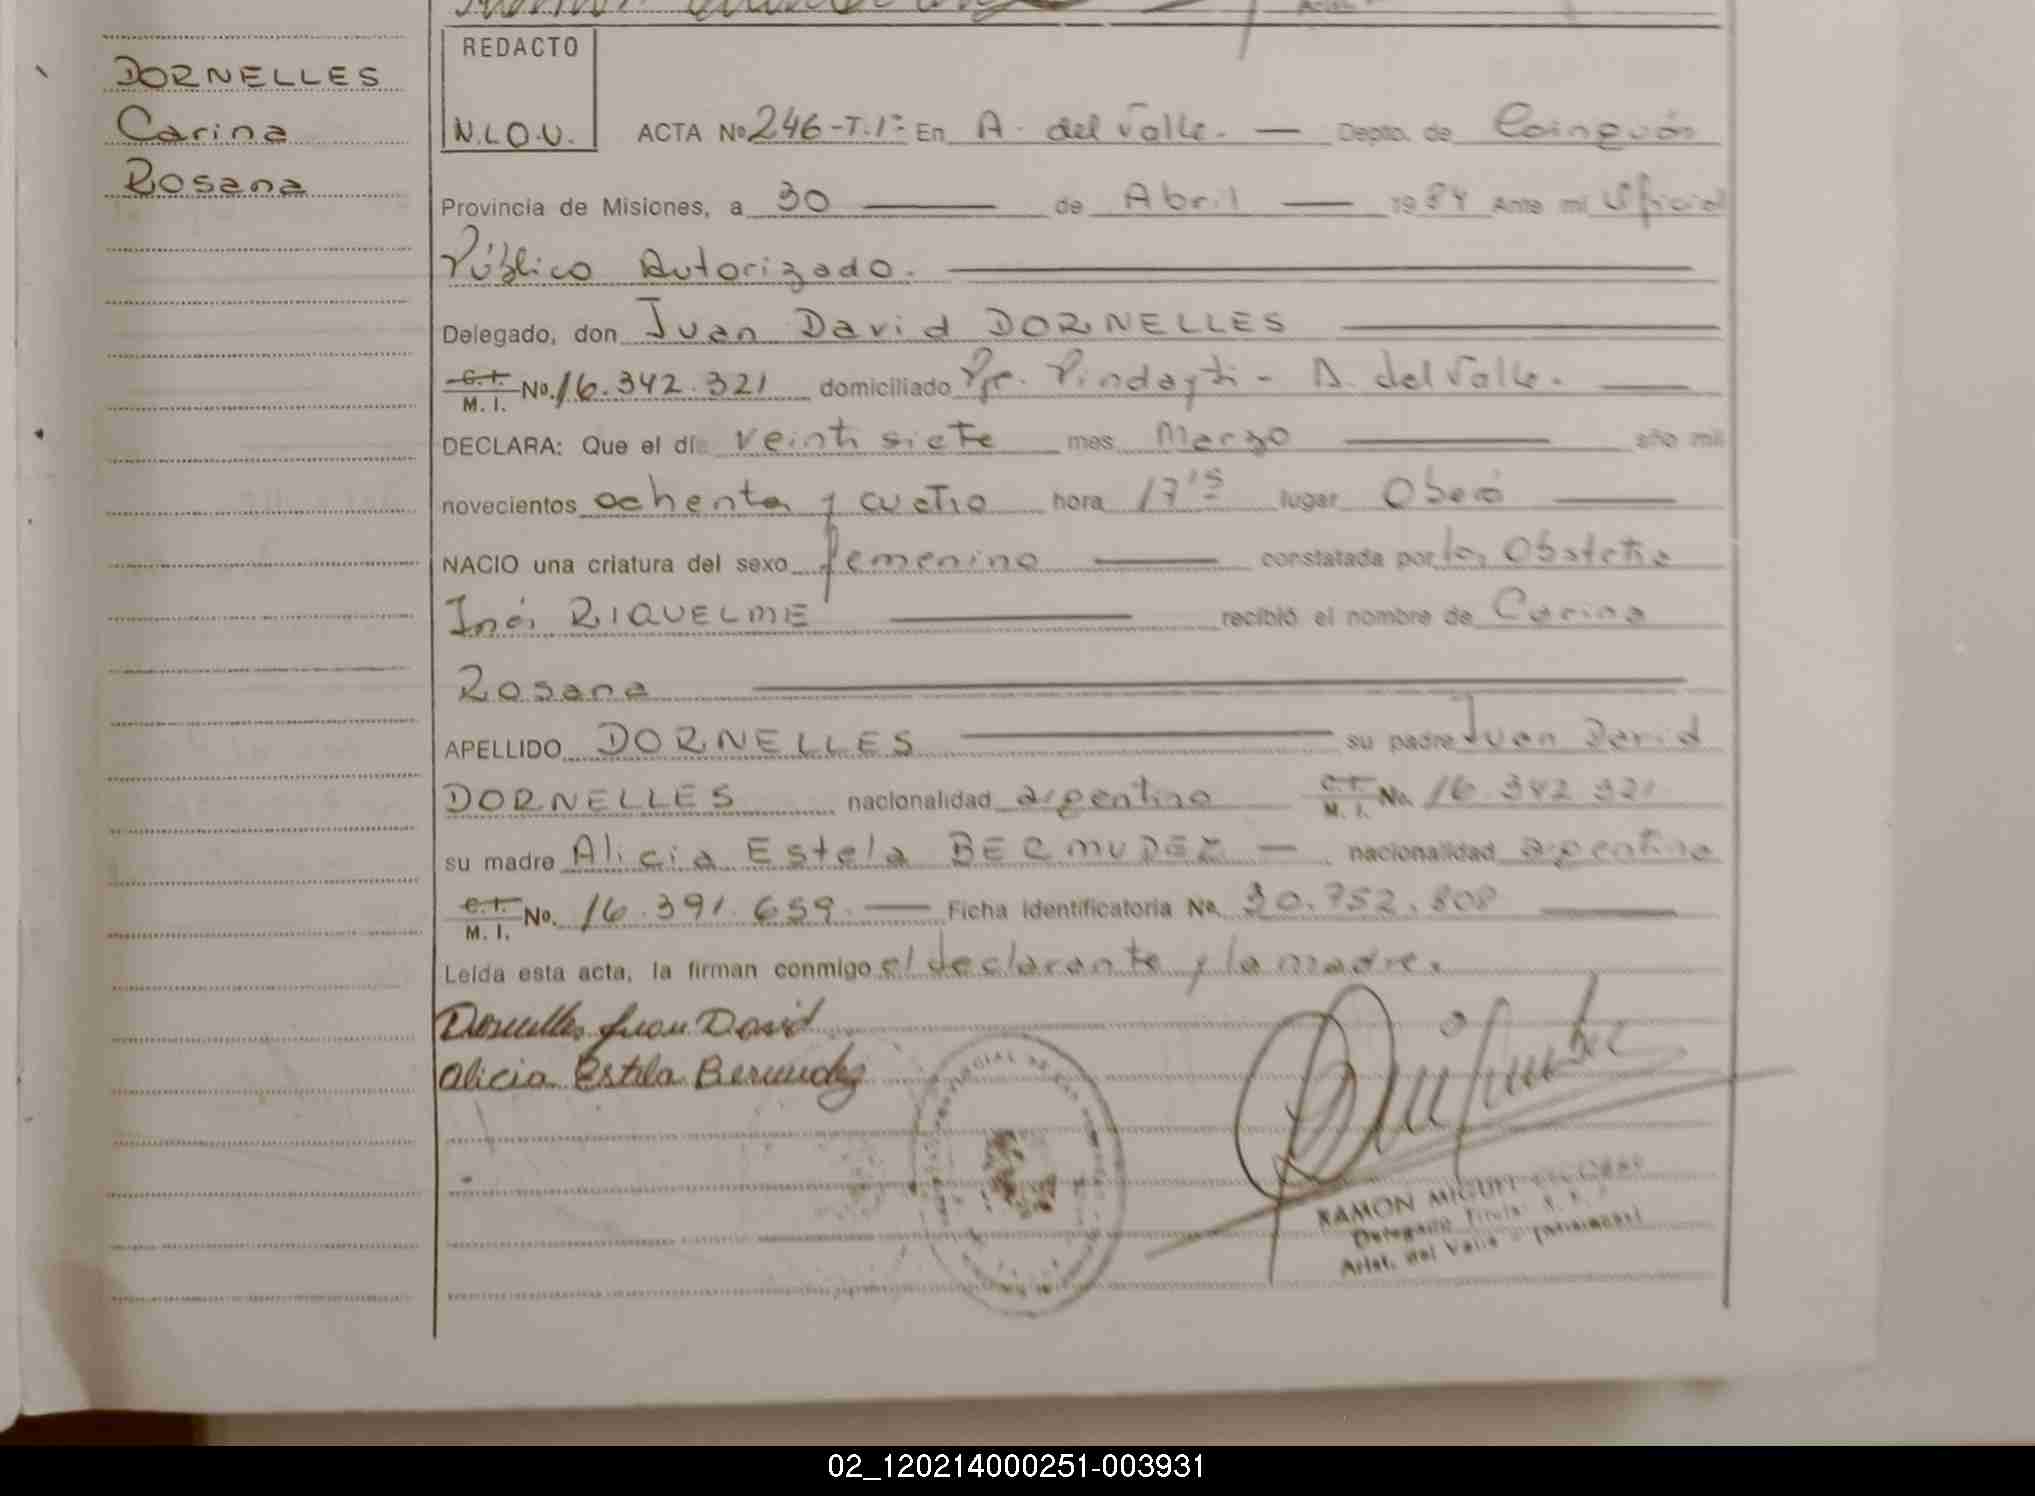 DORNELLES
Carina
Rosana
REDACTO
N.L.O.U.
ACTA No 246-T.1º En A. del Valle. — Depto. de Cainguás
Provincia de Misiones, a 30 — de Abril — 1984 Ante mi Oficial
Público Autorizado.
Delegado, don Juan David DORNELLES
C.I. M. I. No. 16.342.321 domiciliado Pje. Pindayti - A. del Valle.
DECLARA: Que el día veinti siete mes Marzo — año mil
novecientos ochenta y cuatro hora 17 15 lugar Oberá
NACIO una criatura del sexo femenino — constatada por la Obstetra
Inés RIQUELME — recibió el nombre de Carina
Rosana
APELLIDO DORNELLES — su padre Juan David
DORNELLES nacionalidad argentina C.I. M. I. No. 16.342.321
su madre Alicia Estela BERMUDEZ — nacionalidad argentina
C.I. M. I. No. 16.391.659. — Ficha Identificatoria No. 30.752.808
Leída esta acta, la firman conmigo el declarante y la madre.
Dornelles Juan David
Alicia Estela Bermudez
RAMON MIGUEL
Delegado Titular
Arist. del Valle (Misiones)
02_120214000251-003931